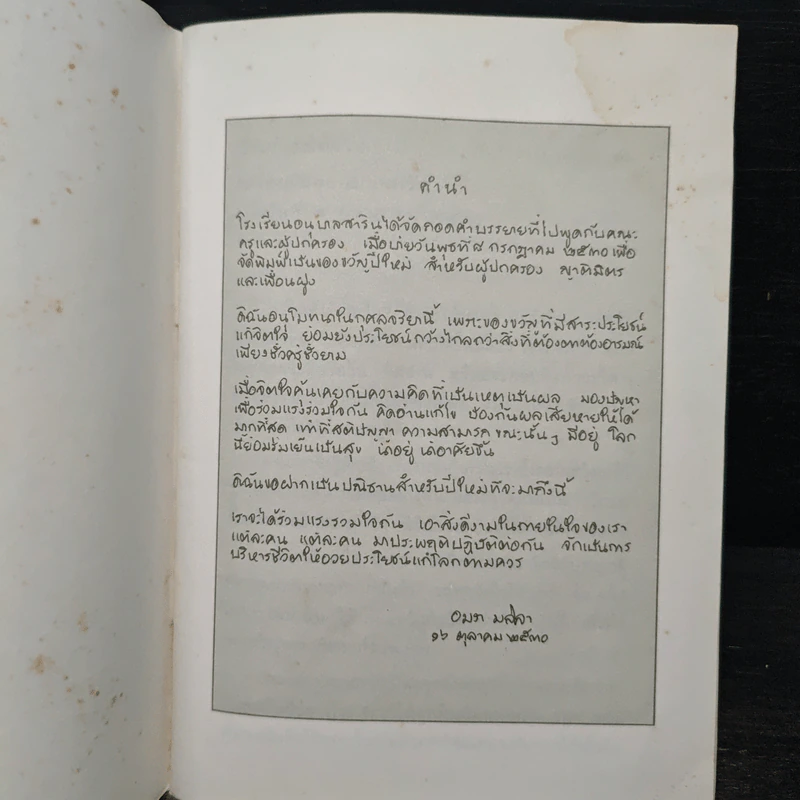 คำนำ
โรงเรียนอนุบาลสารินได้จัดถอดคำบรรยายที่ไปพูดกับคณะ
ครูและผู้ปกครอง เมื่อบ่ายวันพุธที่๘ กรกฎาคม ๒๕๓๐ เพื่อ
จัดพิมพ์เป็นของขวัญปีใหม่ สำหรับผู้ปกครอง ญาติมิตร
และเพื่อนฝูง
ดิฉันอนุโมทนาในกุศลจริยานี้ เพราะของขวัญที่มีสาระประโยชน์
แก่จิตใจ ย่อมยังประโยชน์กว้างไกลกว่าสิ่งที่ต้องตาต้องอารมณ์
เพียงชั่วครู่ชั่วยาม
เมื่อจิตใจคุ้นเคยกับความคิดที่เป็นเหตุเป็นผล มองปัญหา
เพื่อร่วมแรงร่วมใจกัน คิดอ่านแก้ไข ป้องกันผลเสียหายให้ได้
มากที่สุด เท่าที่สติปัญญา ความสามารถ ขณะนั้นๆ มีอยู่ โลก
นี้ย่อมร่มเย็นเป็นสุข น่าอยู่ น่าอาศัยขึ้น
ดิฉันขอฝากเป็นปณิธานสำหรับปีใหม่ที่จะมาถึงนี้
เราจะได้ร่วมแรงรวมใจกัน เอาสิ่งดีงามในภายในใจของเรา
แต่ละคน แต่ละคน มาประพฤติปฏิบัติต่อกัน จักเป็นการ
บริหารชีวิตให้อวยประโยชน์แก่โลกตามควร
อมรา มลิลา
๑๖ ตุลาคม ๒๕๓๐